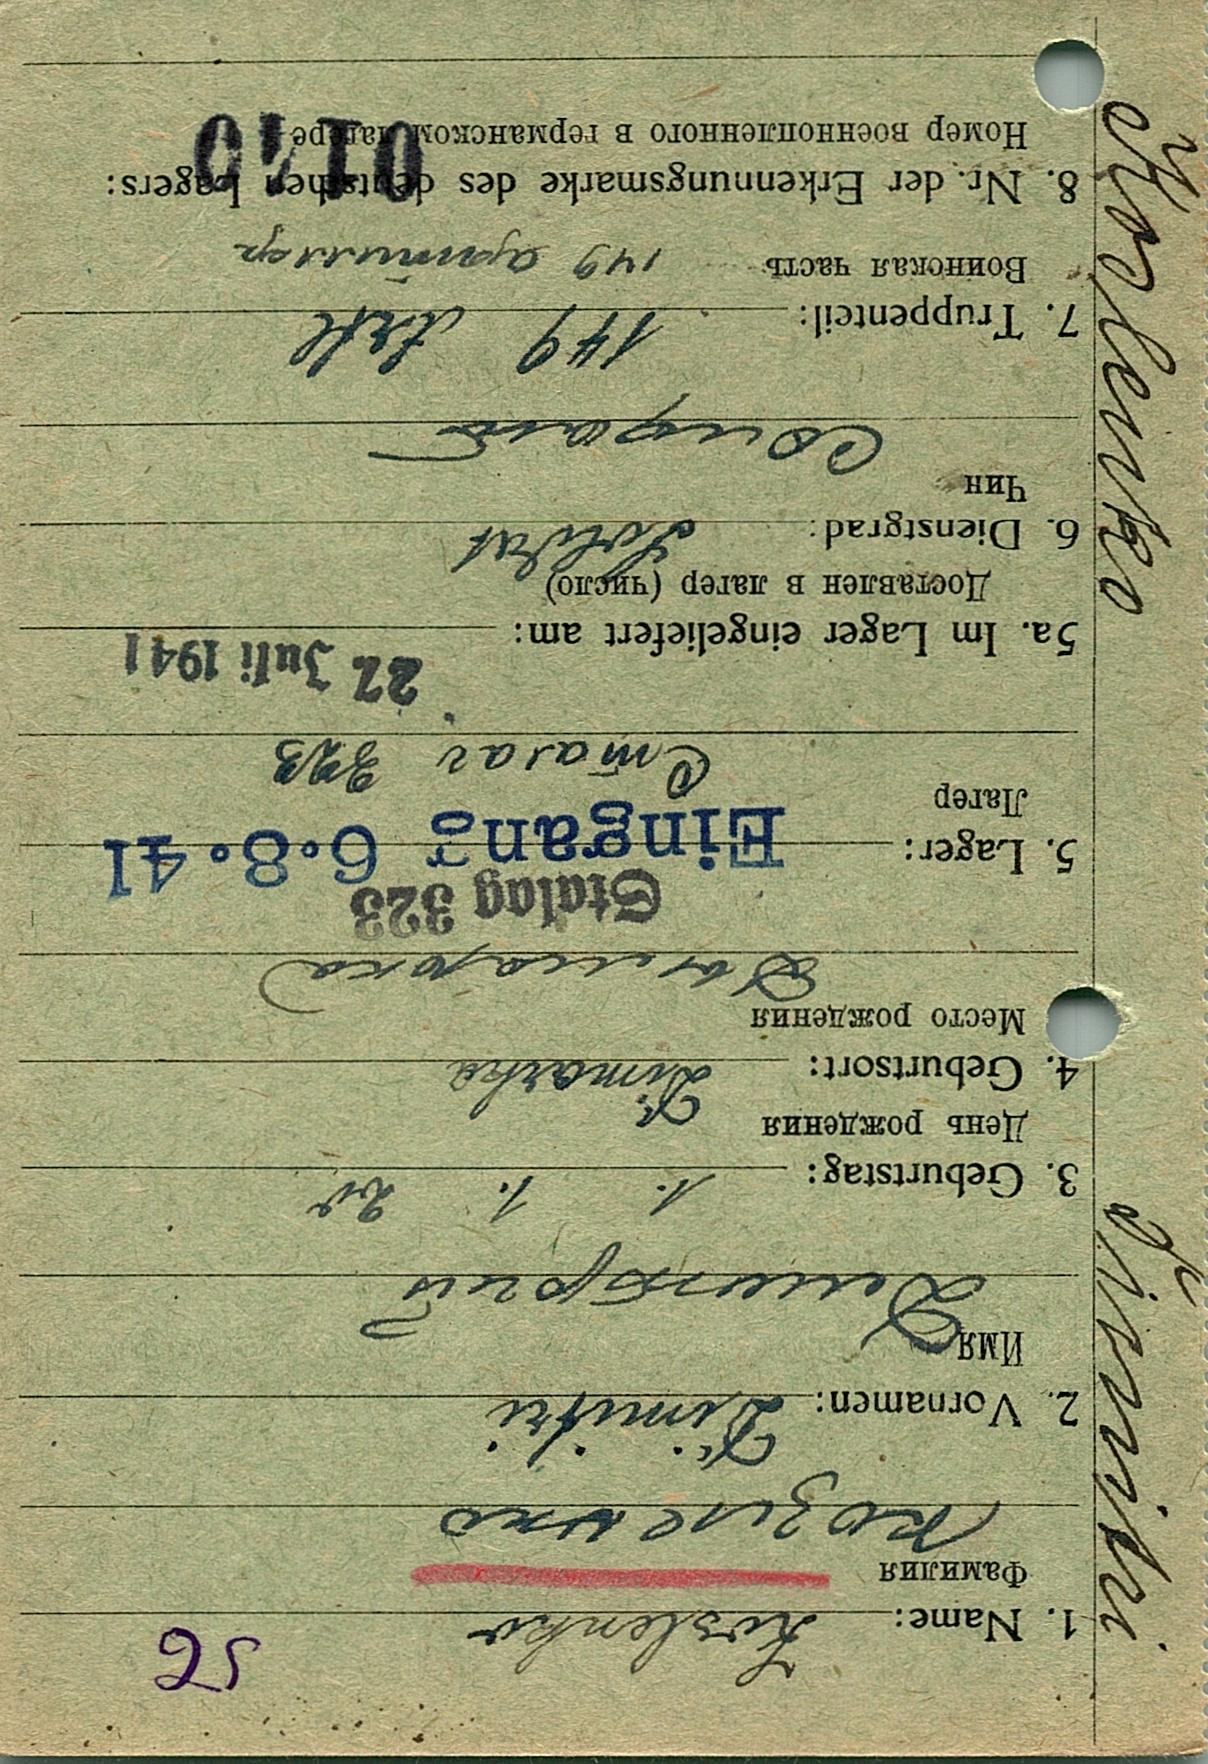 Koslenko Dimitri
56
1. Name: Koslenko
Фамилия
Козленко
2. Vornamen: Dimitri
Имя
Дмитрий
3. Geburtstag: 1. 1. 20
День рождения
4. Geburtsort: Dimarka
Место рождения
Дымарка
Stalag 323
5. Lager: Eingang 6.8.41
Лагер
Сталаг 323
22 Juli 1941
5a. Im Lager eingeliefert am:
Доставлен в лагер (число)
6. Dienstgrad: Soldat
Чин
Солдат
7. Truppenteil: 149 Art
Воинская часть 149 артиллер
8. Nr. der Erkennungsmarke des deutschen Lagers:
Номер военнопленного в германском лагере